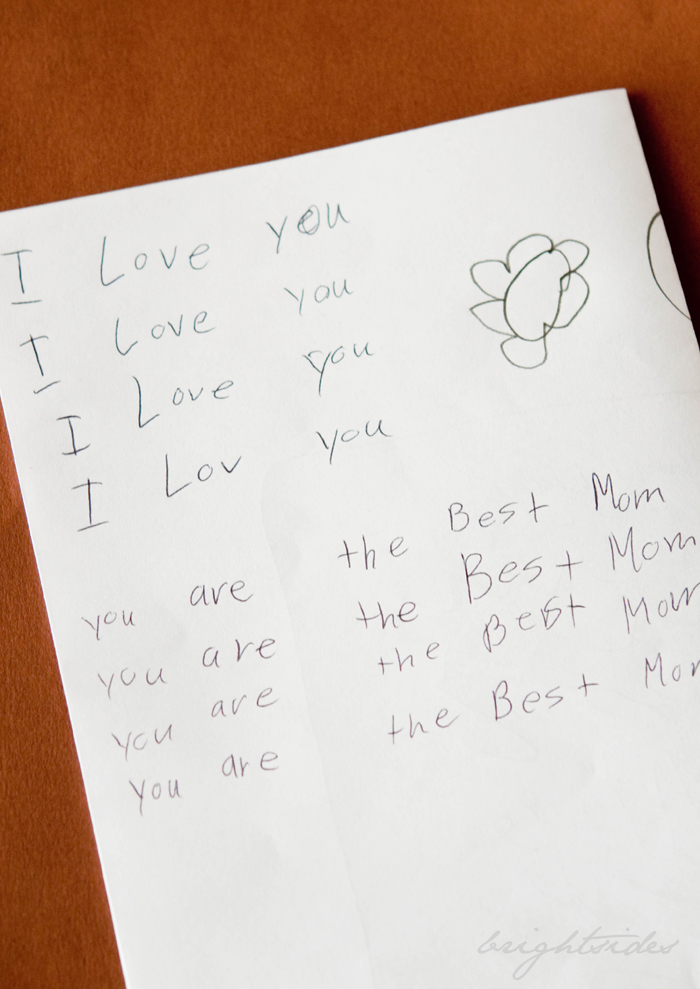 I Love you
I Love you
I Love you
I Lov you
you are the Best Mom
you are the Best Mom
you are the Best Mom
you are the Best Mom
brightsides